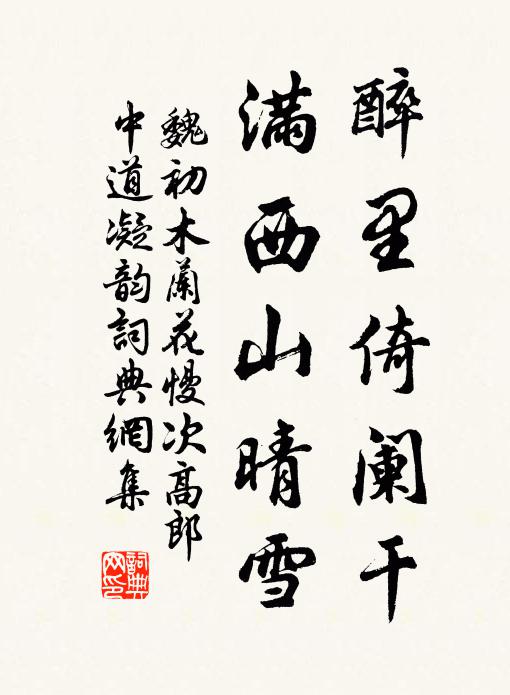 醉里倚阑干
满西山晴雪
魏初木蘭花慢次高郎
中道凝韵詞典網集
詞典网印